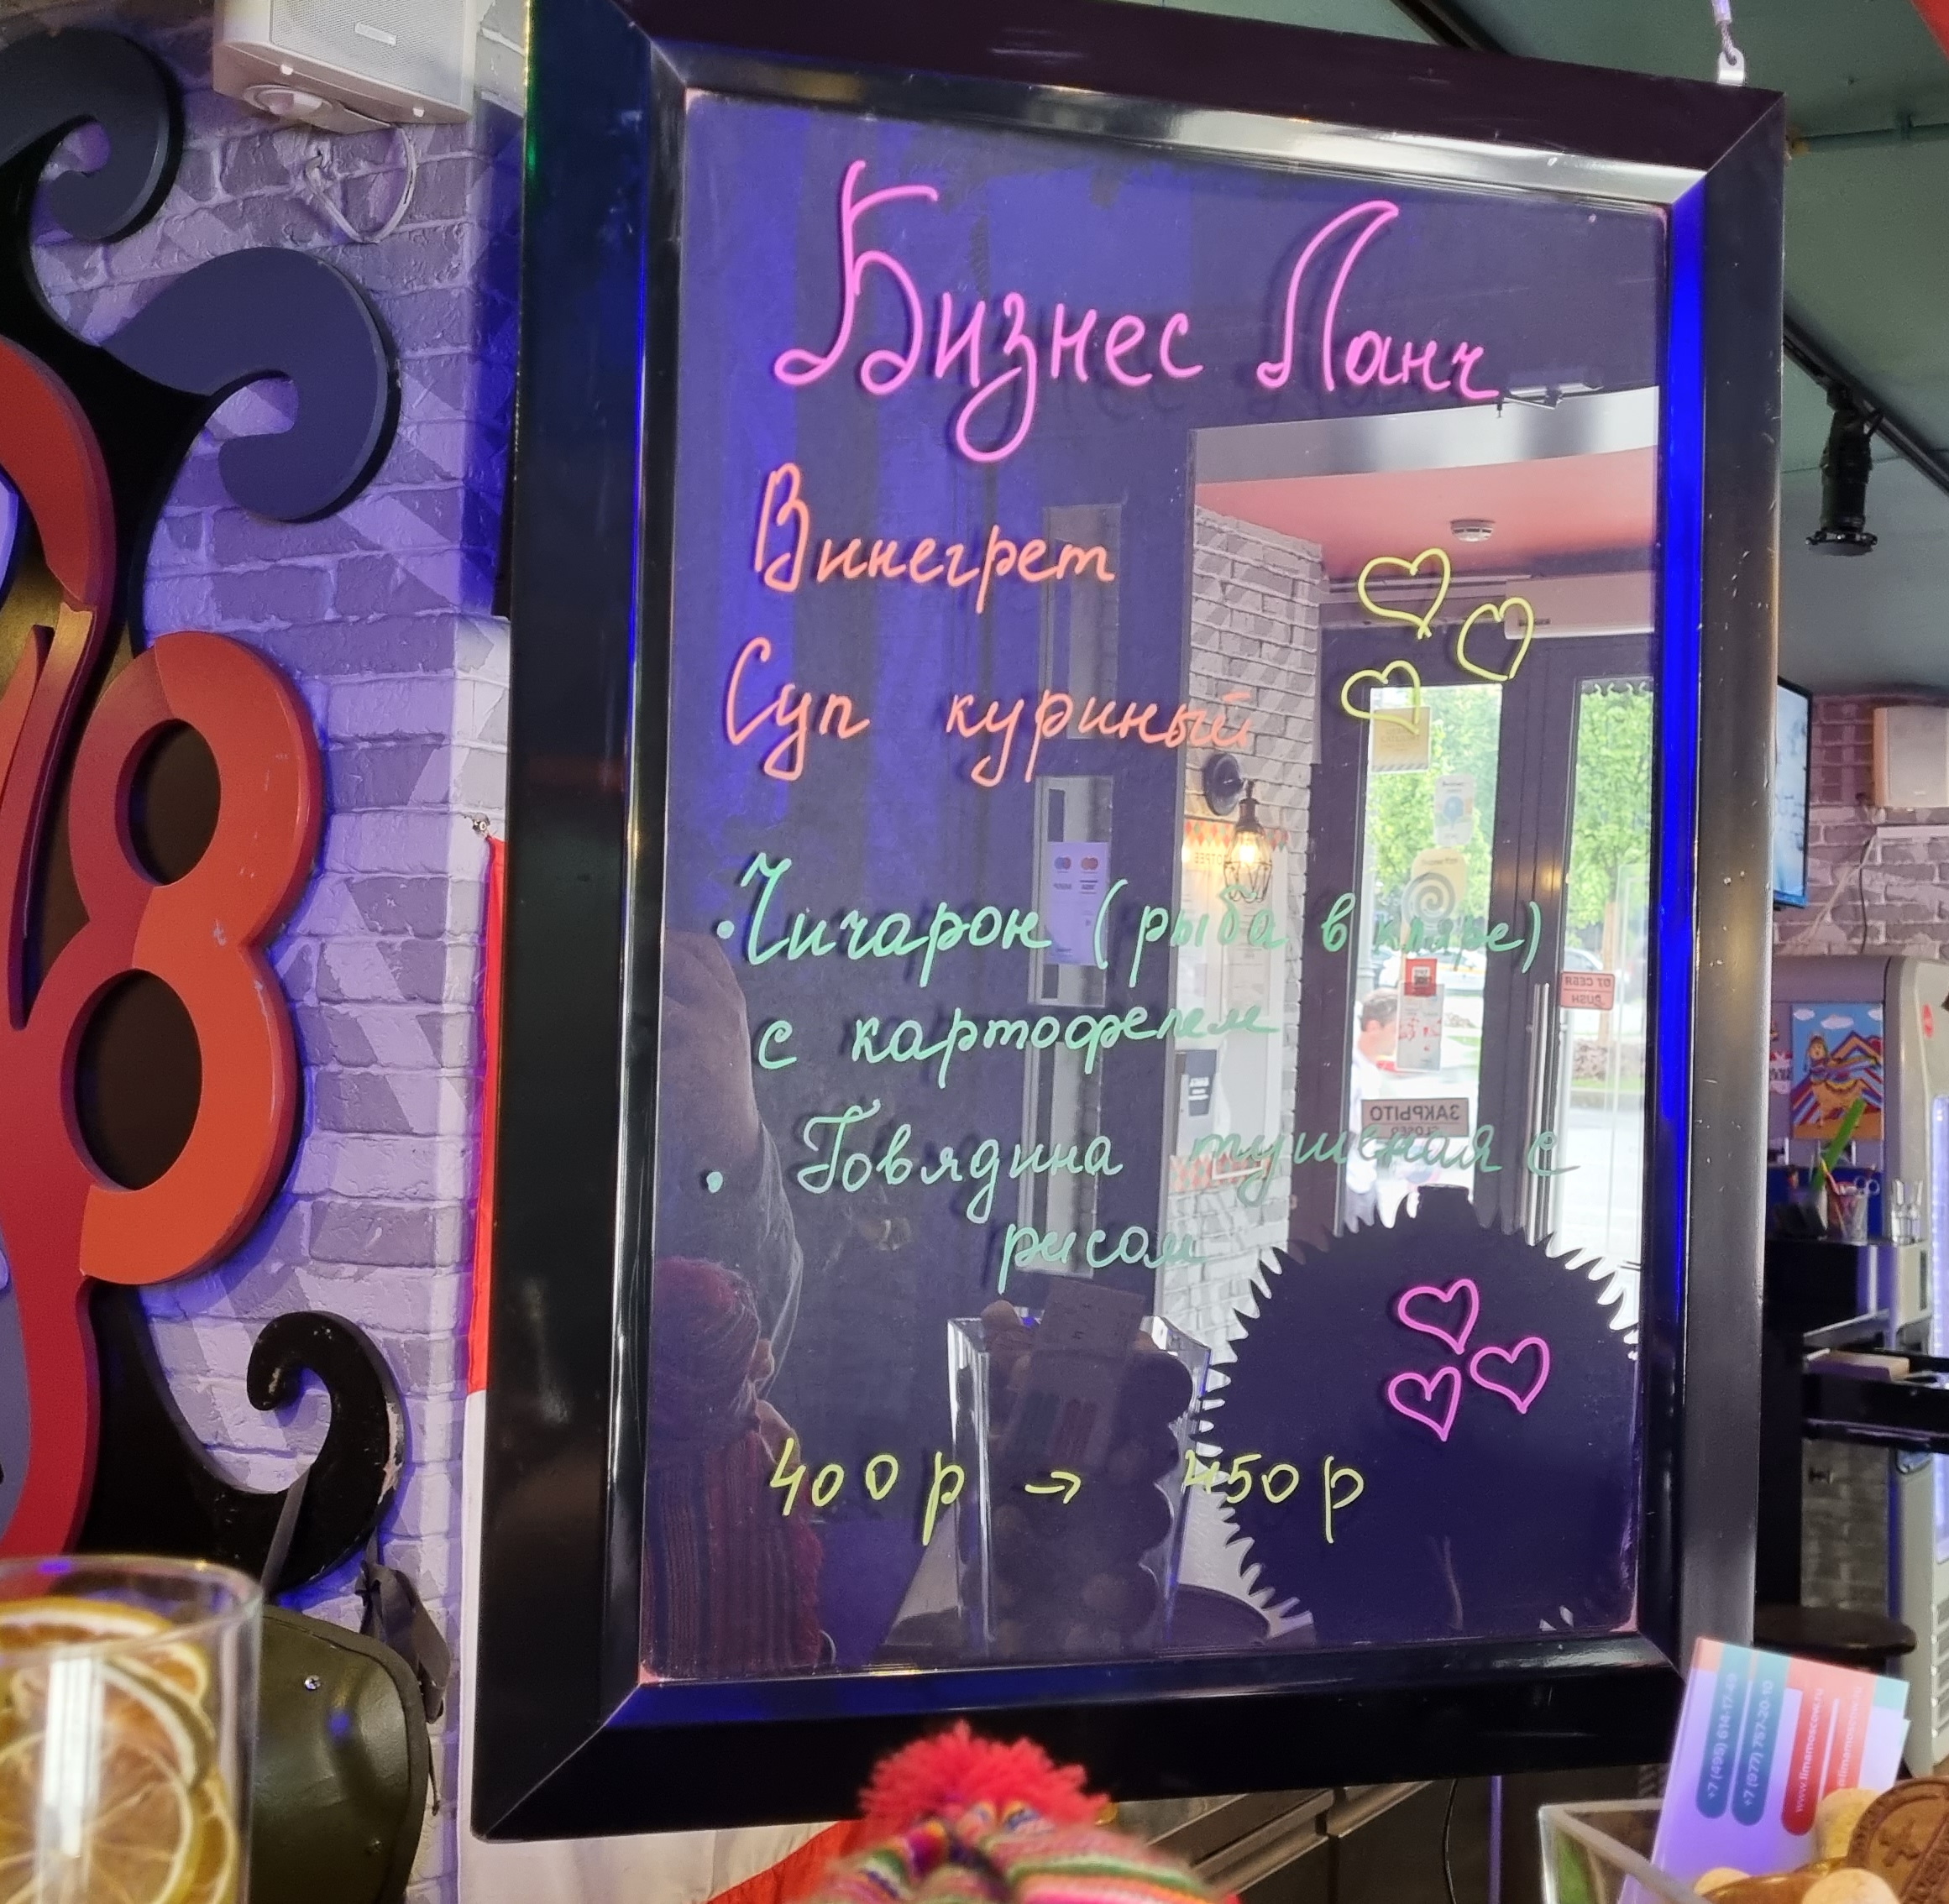 Бизнес Ланч
Винегрет
Суп куриный
• Чичарон (рыба в кляре)
с картофелем
• Говядина тушеная с
рисом
400 р → 450 р
ОТ СЕБЯ
PUSH
ЗАКРЫТО
CLOSED
+7 (495) 614-17-49
+7 (977) 757-20-10
www.limamoscow.ru